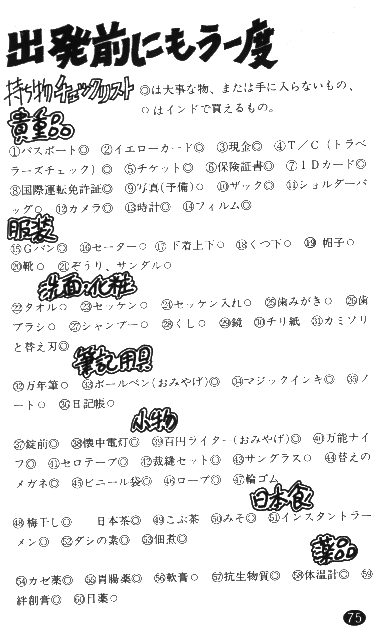 出発前にもう一度
持ち物チェックリスト
◎は大事な物、または手に入らないもの、
○はインドで買えるもの。
貴重品
①パスポート◎ ②イエローカード◎ ③現金◎ ④T／C（トラベ
ラーズチェック）◎ ⑤チケット◎ ⑥保険証書◎ ⑦IDカード◎
⑧国際運転免許証◎ ⑨写真(予備)○ ⑩ザック◎ ⑪ショルダーバ
ッグ○ ⑫カメラ◎ ⑬時計◎ ⑭フィルム◎
服装
⑮Gパン◎ ⑯セーター○ ⑰下着上下○ ⑱くつ下○ ⑲帽子○
⑳靴○ ㉑ぞうり、サンダル○
洗面・化粧
㉒タオル○ ㉓セッケン○ ㉔セッケン入れ○ ㉕歯みがき○ ㉖歯
ブラシ○ ㉗シャンプー○ ㉘くし○ ㉙鏡 ㉚チリ紙 ㉛カミソリ
と替え刃◎
筆記用具
㉜万年筆○ ㉝ボールペン(おみやげ)◎ ㉞マジックインキ◎ ㉟ノ
ート○ ㊱日記帳○
小物
㊲錠前◎ ㊳懐中電灯◎ ㊴百円ライター(おみやげ)◎ ㊵万能ナイ
フ◎ ㊶セロテープ◎ ㊷裁縫セット◎ ㊸サングラス○ ㊹替えの
メガネ◎ ㊺ビニール袋◎ ㊻ロープ◎ ㊼輪ゴム
日本食
㊽梅干し◎ 日本茶◎ ㊾こぶ茶 ㊿みそ◎ 51インスタントラー
メン◎ 52ダシの素◎ 53佃煮◎
薬品
54カゼ薬◎ 55胃腸薬◎ 56軟膏○ 57抗生物質◎ 58体温計◎ 59
絆創膏◎ 60目薬○
75